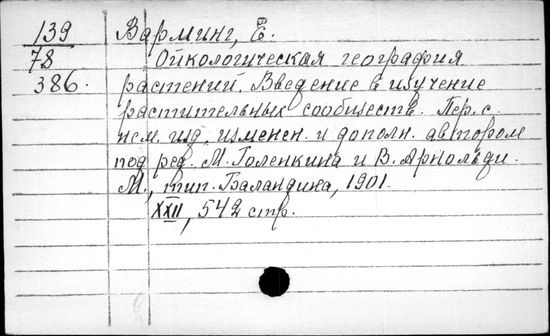 139 Варминг, Е.
78 Ойкологическая география
386. растений. Введение в изучение
растительных сообществ. Пер. с
нем. изд. изменен. и дополн. автором
под ред. М. Голенкина и В. Арнольди.
М., тип. Баландина, 1901.
XXII, 542 стр.